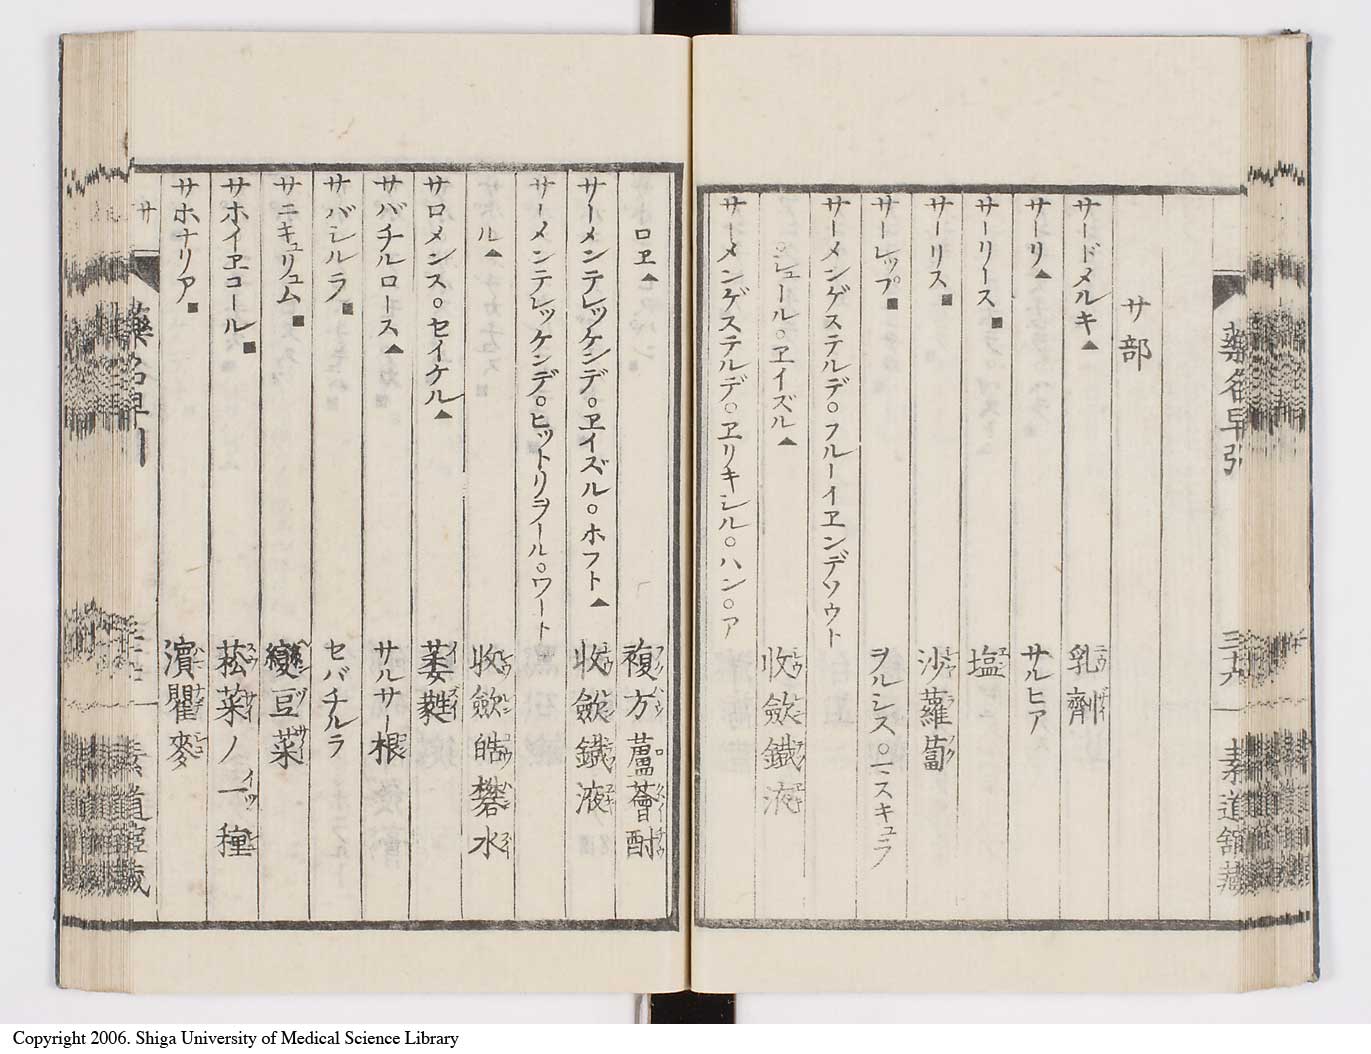 藥名早引
三十九
素道舘藏
サ部
サードメルキ▲ 乳劑 ニウザイ
サーリ▲ サルヒア
サーリース■ 塩
サーリス■ 沙蘿蔔
サーレップ■ ヲルシス○一スキュラ
サーメンゲステルデ○フルーイヱンデソウト
○シュール○ヱイズル▲ 收斂鐵液
サーメンゲステルデ○ヱリキシル○ハン○ア
ロヱ▲ 複方蘆薈酎
サーメンテレッケンデ○ヱイズル○ホフト▲ 收斂鐵液
サーメンテレッケンデ○ヒットリヲール○ワート
ル▲ 收斂皓礬水
サロメンス○セイケル▲ 萎蕤
サバチルロース▲ サルサ根
サバシルラ■ セバチルラ
サニキュリュム■ 變豆菜
サホイヱコール■ 菘菜ノ一種
サホナリア■ 濱瞿麥
サ
藥名早引
素道舘藏
Copyright 2006. Shiga University of Medical Science Library